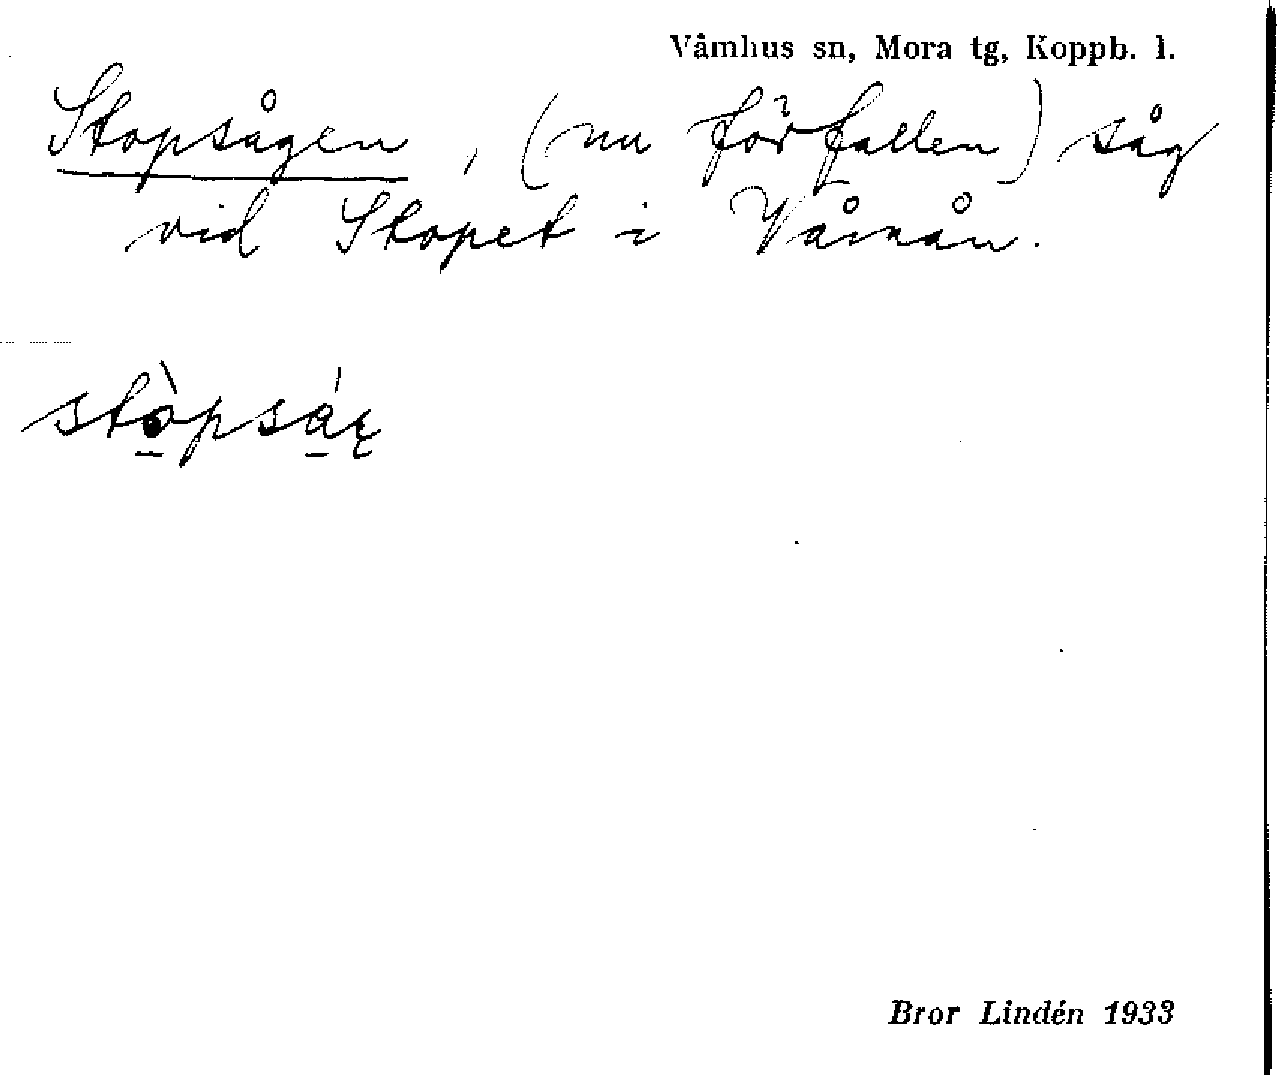 Våmhus sn, Mora tg, Koppb. l.
Stopsågen, (nu förfallen) såg
vid Stopet i Våmån.
Bror Lindén 1933